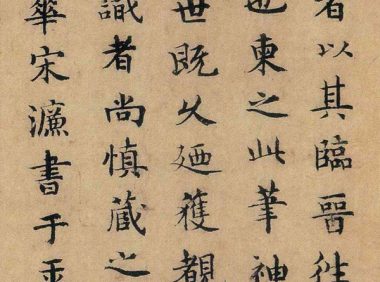 者以其臨晉徃
也柬之此筆神
世既久廼獲覩
識者尚慎藏之
華宋濂書于